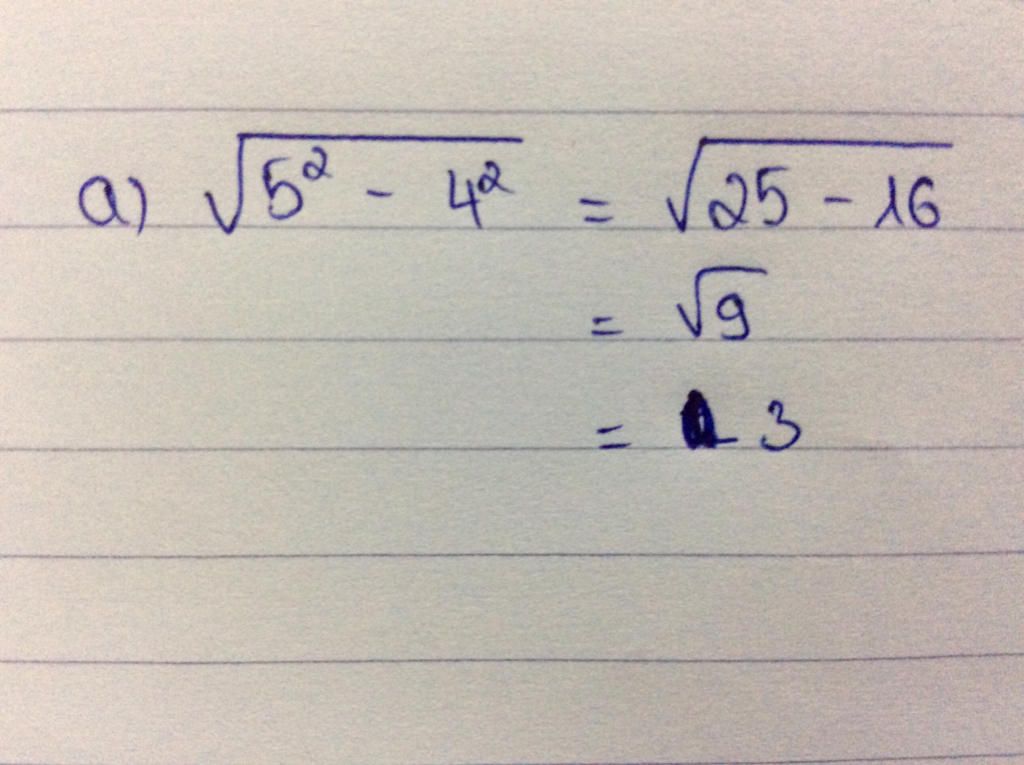 a) √(5² - 4²) = √(25 - 16)
= √9
= 3